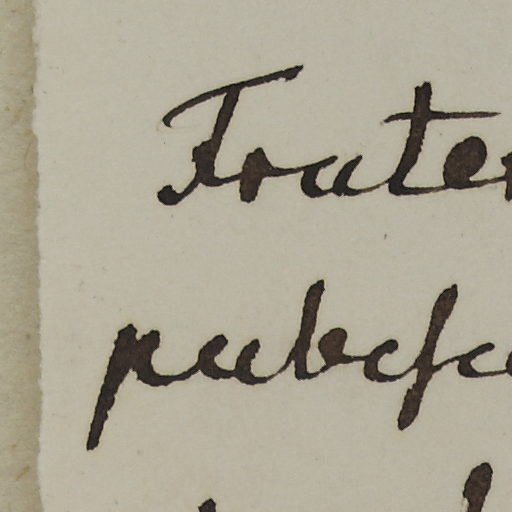 Frater
pubesc